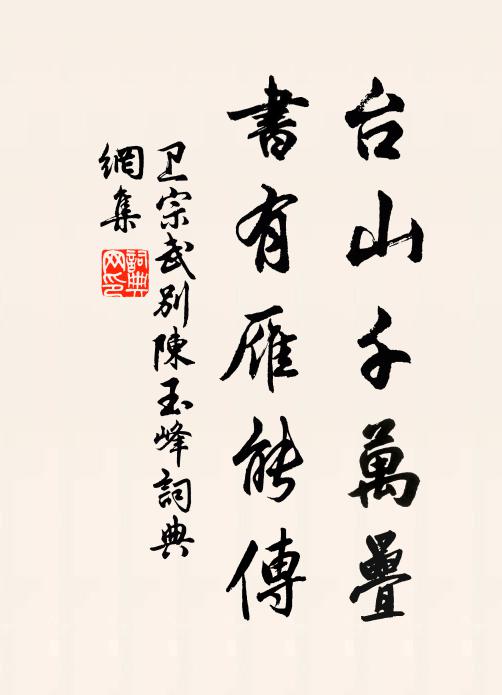 台山千萬疊
書有雁能傳
卫宗武别陳玉峰詞典
網集
詞典網印